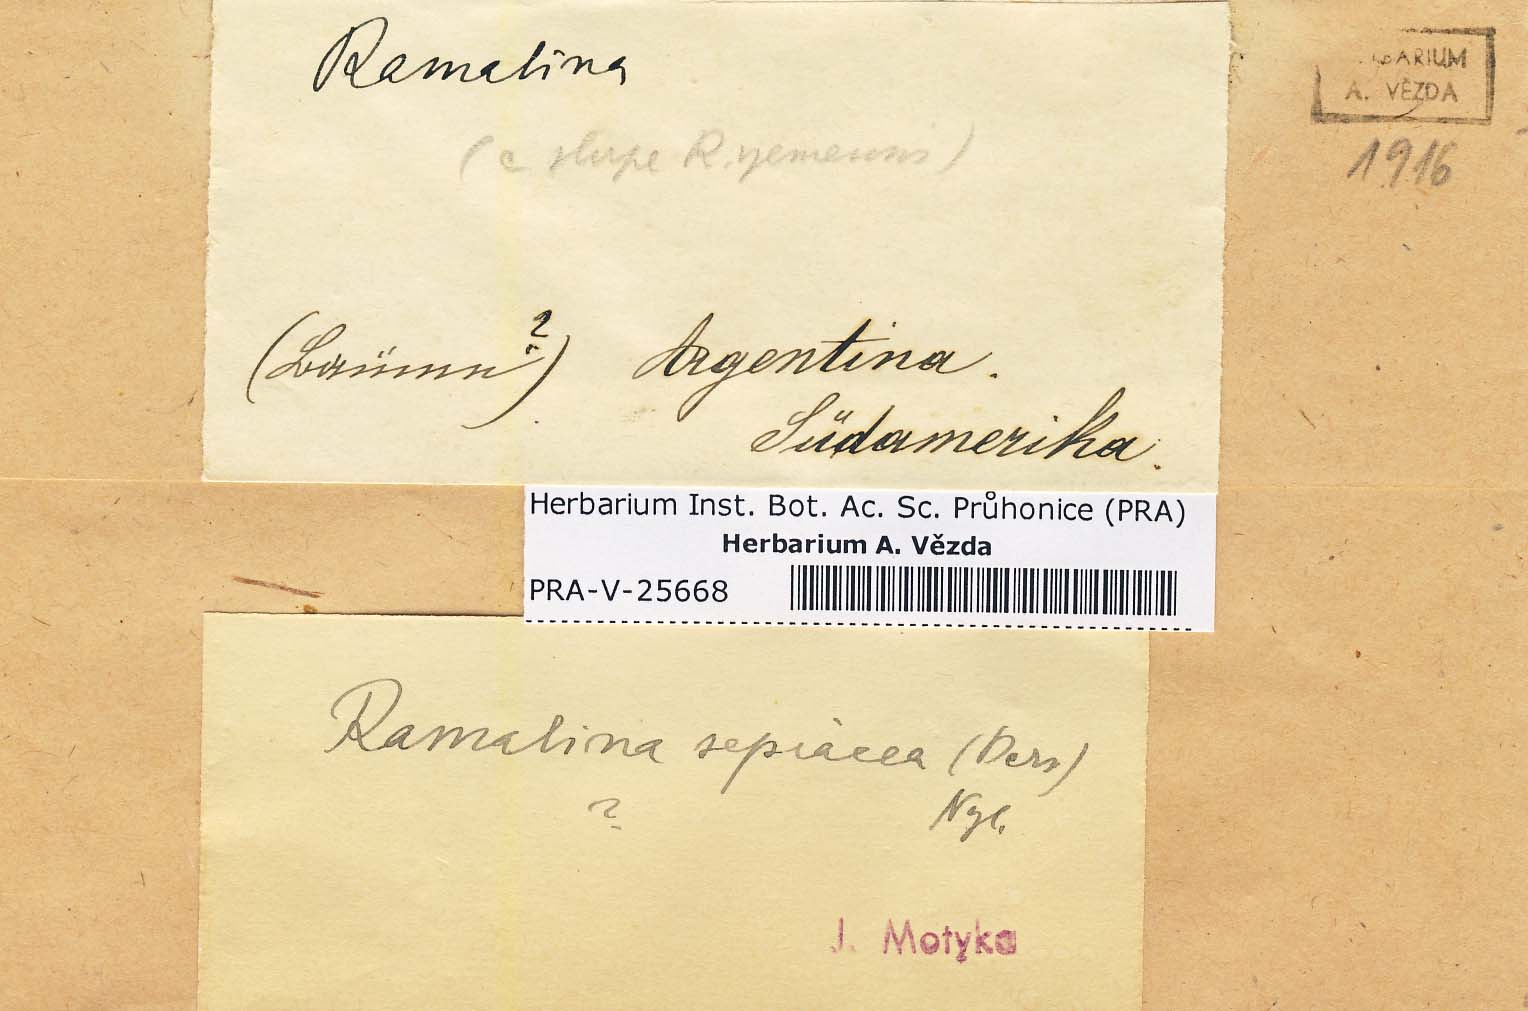 Ramalina
HERBARIUM
A. VĚZDA
1916
(e stirpe R. yemensis)
(Bäumen ?) Argentina.
Südamerika.
Herbarium Inst. Bot. Ac. Sc. Průhonice (PRA)
Herbarium A. Vězda
PRA-V-25668
Ramalina sepiacea (Pers)
? Nyl.
J. Motyka